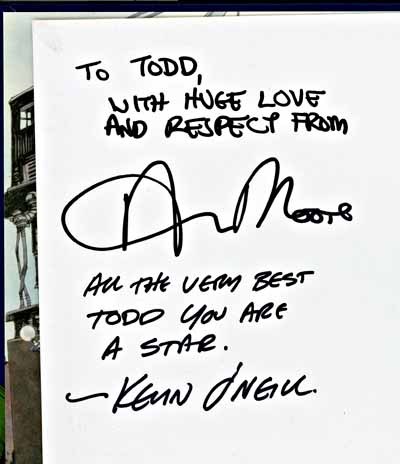 TO TODD,
WITH HUGE LOVE
AND RESPECT FROM
Alan Moore
ALL THE VERY BEST
TODD YOU ARE
A STAR.
—KEVIN O'NEILL.